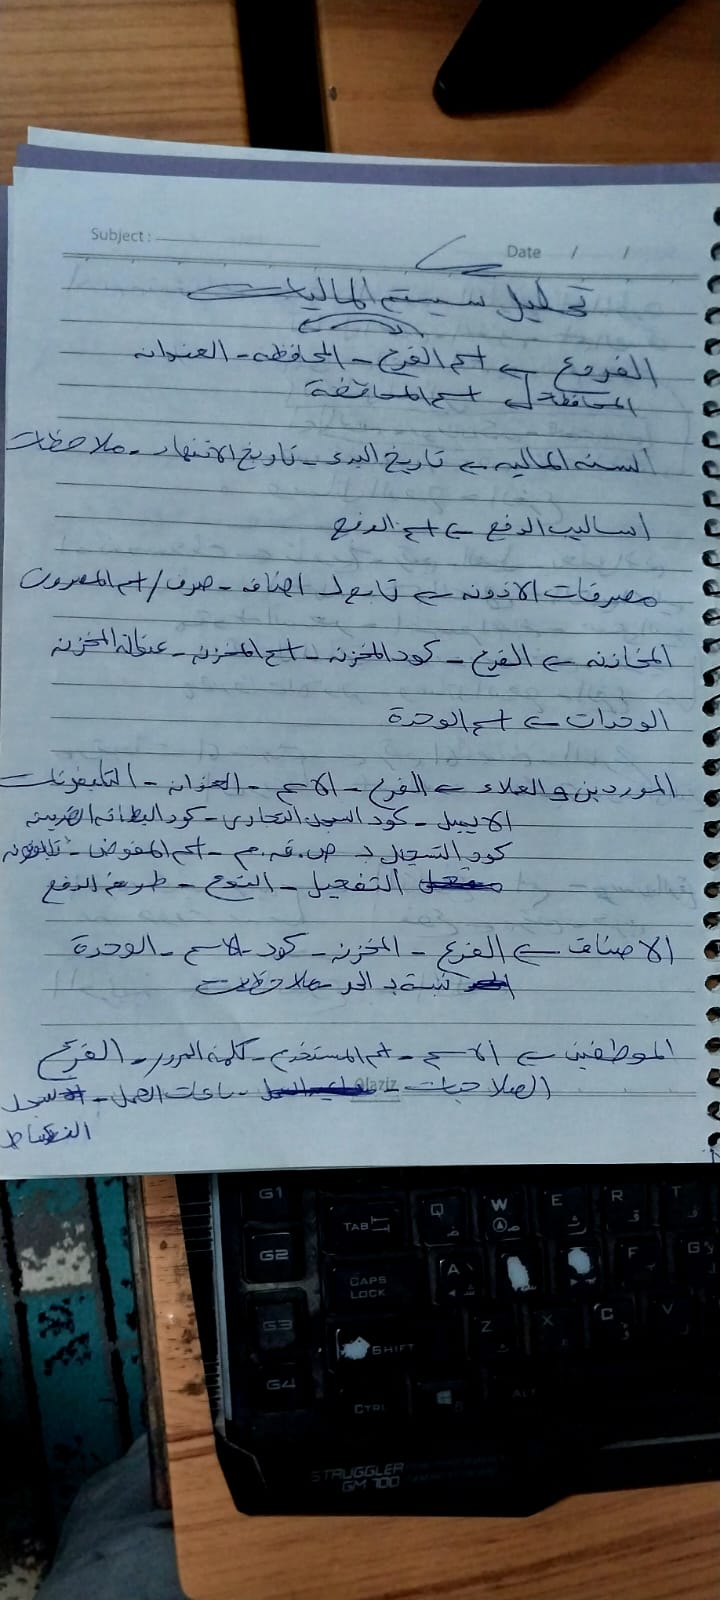 Subject :
Date / /
تحليل سيستم الماليات
الفروع ← اسم الفرع - المحافظة - العنوان
المحافظة ← اسم المحافظة
السنه الماليه ← تاريخ البدء - تاريخ الانتهاء - ملاحظات
اساليب الدفع ← اسم الدفع
مصرفات الاذونه ← تابع لـ اضافه - صرف / اسم المصروف
المخازنه ← الفرع - كود المخزن - اسم المخزن - عنوان المخزن
الوحدات ← اسم الوحدة
الموردين والعملاء ← الفرع - الاسم - العنوان - التليفونات
الايميل - كود السجل التجارى - كود البطاقه الضريبيه
كود التسجيل بـ ض.ق.م - اسم المفوض - تليفونه
التفعيل - النوع - طريقة الدفع
الاصناف ← الفرع - المخزن - كود - الاسم - الوحدة
ملاحظات
الموظفين ← الاسم - اسم المستخدم - كلمة المرور - الفرع
الصلاحيات - ساعات العمل - سجل
النشاط
Olaziz
G1 TAB Q W E R T
G2 CAPS LOCK A F G
G3 SHIFT Z X C V
G4 CTRL ALT
STRUGGLER
GM 700